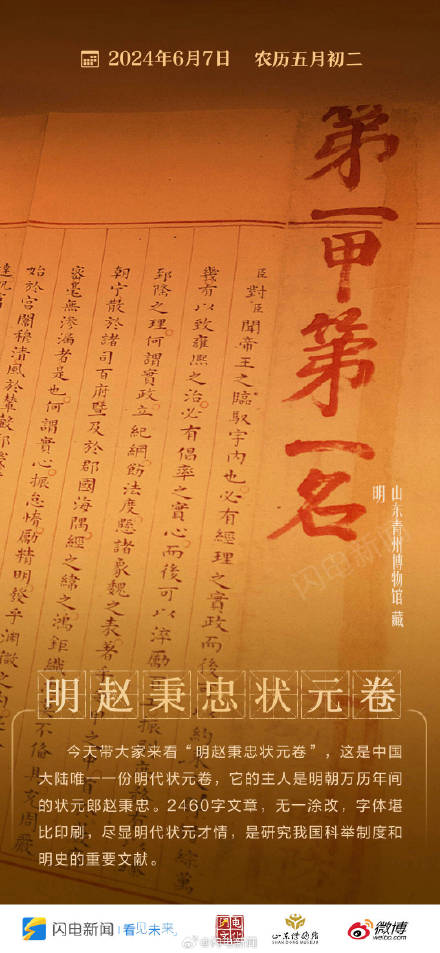 2024年6月7日 农历五月初二
第一甲第一名
臣對臣聞帝王之臨馭宇内也必有經理之實政而後
幾有以致雍熙之治必有倡率之實心而後可以淬勵
郅隆之理何謂實政立紀綱飭法度懸諸象魏之表著乎
朝宁散於諸司百府暨及於郡國海隅經之緯之鴻鉅纖
毫無滲漏者是也何謂實心振怠惰勵精明發乎淵微之
始於宮闈穆清風於輦轂
明
山东青州博物馆 藏
闪电新闻
明赵秉忠状元卷
今天带大家来看“明赵秉忠状元卷”，这是中国
大陆唯一一份明代状元卷，它的主人是明朝万历年间
的状元郎赵秉忠。2460字文章，无一涂改，字体堪
比印刷，尽显明代状元才情，是研究我国科举制度和
明史的重要文献。
闪电新闻 看见未来
@闪电新闻
山东博物馆
SHAN DONG MUSEUM
微博
weibo.com